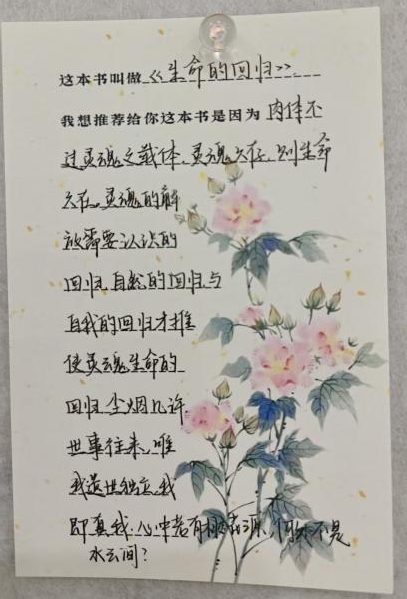 这本书叫做《生命的回归》
我想推荐给你这本书是因为 肉体不
过灵魂之载体,灵魂六存,则生命
六存。灵魂的解
放需要认识的
回归,自然的回归与
自我的回归才推
使灵魂生命的
回归,尘烟几许
世事往来,唯
我遗世独立,我
即真我。心中若有桃花源,何处不是
水云间?